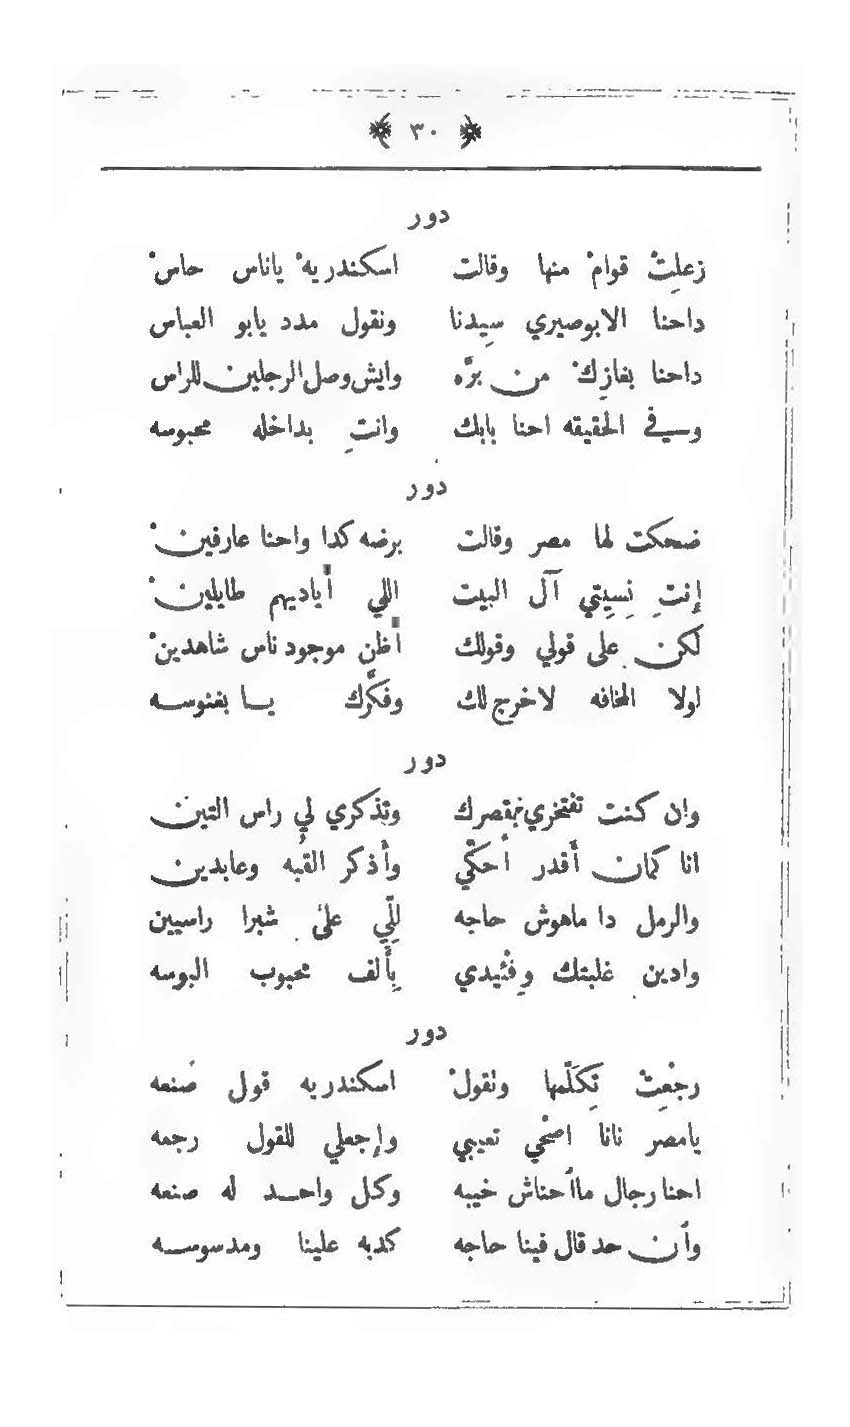 ﴿ ٣٠ ﴾
دور
زعلِتْ قوامْ منها وقالت اسكندريهْ ياناس حاسْ
داحنا الابوصيري سِيدنا ونقول مدد يابو العباس
داحنا بغازِكْ من برَّه وايش وصل الرجلين للراس
وفي الحقيقه احنا بابك وانتِ بداخله محبوسه
دور
ضحكت لها مصر وقالت برضه كدا واحنا عارفينْ
إنتِ نِسِيتي آل البيت اللي أياديهم طايلينْ
لكن على قولي وقولك أظن موجود ناس شاهدينْ
لولا المخافه لاخرج لك وفكَّرك يا بغنوسه
دور
وان كنت تفتخري بقصرك وتذكري لي راس التين
انا كمان أقدر أحكّي وأذكر القُبه وعابدين
والرمل دا ماهوش حاجه للِّي على شبرا راسيين
وادين غلبتك وفْئيدي بِألف محبوب البوسه
دور
رجْعِتْ تِكَلّمها وتقولْ اسكندريه قول صنعه
يامصر نانا اصْحي تعيبي وإجعلي للقول رجعه
احنا رجال ماأحناش خيبه وكل واحد له صنعه
وأن حد قال فينا حاجه كدبه علينا ومدسوسه